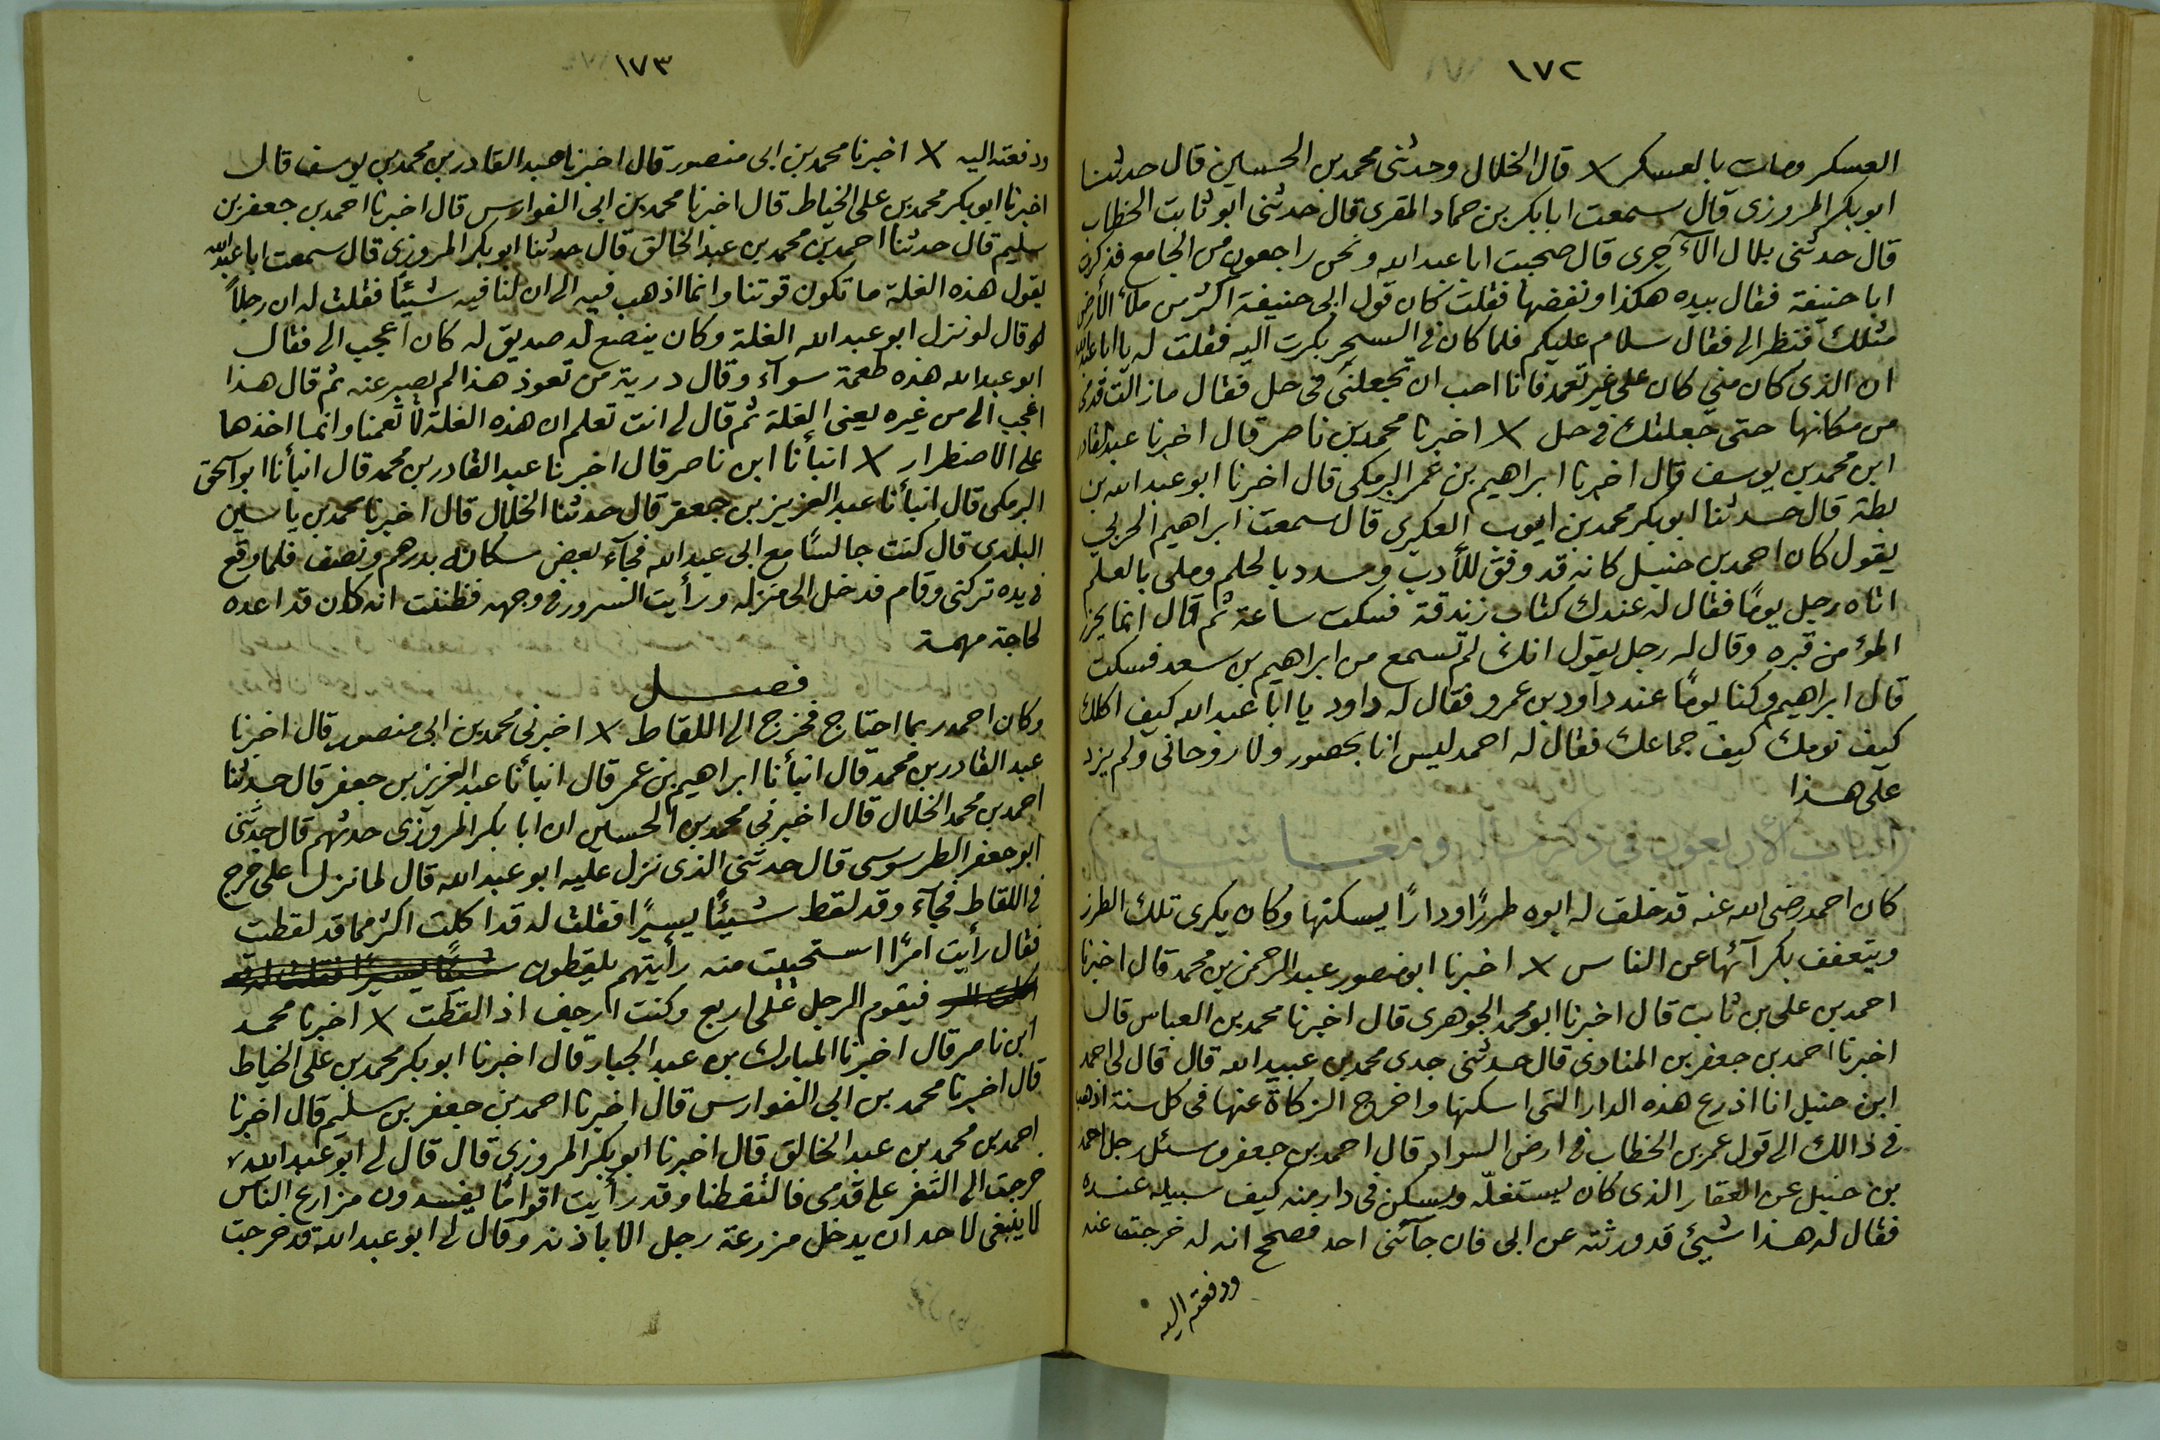 ١٧٢
العسكر ومات بالعسكر × قال الخلال وحدثنى محمد بن الحسين قال حدثنا
ابو بكر المروزى قال سمعت ابا بكر بن حماد المقرى قال حدثنى ابو ثابت الخطاب
قال حدثنى بلال الآجرى قال صحبت ابا عبد الله ونحن راجعون من الجامع فذكرن
ابا حنيفة فقال بيده هكذا ونفضها فقلت كان قول ابى حنيفة اكثر من ملأ الأرض
مثلك فنظر الى فقال سلام عليكم فلما كان فى السحر بكرت اليه فقلت له يا ابا عبد الله
ان الذى كان منى كان على غير تعمد فانا احب ان تجعلنى فى حل فقال ما زالت قدمى
من مكانها حتى جعلتك فى حل × اخبرنا محمد بن ناصر قال اخبرنا عبد القادر
ابن محمد بن يوسف قال اخبرنا ابراهيم بن عمر البرمكى قال اخبرنا ابو عبد الله بن
بطة قال حدثنا ابو بكر محمد بن ايوب العكبرى قال سمعت ابراهيم الحربى
يقول كان احمد بن حنبل كانه قد وفق للأدب وسدد بالحلم وملى بالعلم
اتاه رجل يومًا فقال له عندك كتاب زندقة فسكت ساعة ثم قال انما يحرز
المؤمن قبره وقال له رجل يقول انك لم تسمع من ابراهيم بن سعد فسكت
قال ابراهيم وكنا يومًا عند داود بن عمرو فقال له داود يا ابا عبد الله كيف اكلك
كيف نومك كيف جماعك فقال له احمد ليس انا بحصور ولا روحانى ولم يزد
على هذا
(الباب الأربعون فى ذكر ماله ومعاشه)
كان احمد رضى الله عنه قد خلف له ابوه طرزًا ودارًا يسكنها وكان يكرى تلك الطرز
ويتعفف بكرائها عن الناس × اخبرنا ابو منصور عبد الرحمن بن محمد قال اخبرنا
احمد بن على بن ثابت قال اخبرنا ابو محمد الجوهرى قال اخبرنا محمد بن العباس قال
اخبرنا احمد بن جعفر بن المنادى قال حدثنى جدى محمد بن عبيد الله قال قال لى احمد
ابن حنبل انا اذرع هذه الدار التى اسكنها واخرج الزكاة عنها فى كل سنة اذهب
فى ذالك الى قول عمر بن الخطاب فى ارض السواد قال احمد بن جعفر وسئل رجل احمد
بن حنبل عن العقار الذى كان يستغلّه ويسكن فى دار منه كيف سبيله عنده
فقال له هذا شيئ قد ورثته عن ابى فان جآئنى احد فصحح انه له خرجت عنه
ودفعته اليه
١٧٣
ودفعته اليه × اخبرنا محمد بن ابى منصور قال اخبرنا عبد القادر بن محمد بن يوسف قال
اخبرنا ابو بكر محمد بن على الخياط قال اخبرنا محمد بن ابى الفوارس قال اخبرنا احمد بن جعفر بن
سليم قال حدثنا احمد بن محمد بن عبد الخالق قال حدثنا ابو بكر المروزى قال سمعت ابا عبد الله
يقول هذه الغلة ما تكون قوتنا وانما اذهب فيه الى ان لنا فيه شيئًا فقلت له ان رجلًا
قال لو نزل ابو عبد الله الغلة وكان يصنع له صديق له كان اعجب الى فقال
ابو عبد الله هذه طعمة سوآء وقال درية من تعوذ هذا لم يصبر عنه ثم قال هذا
اعجب الى من غيره يعنى الغلة ثم قال لى انت تعلم ان هذه الغلة لا تعمنا وانما اخذها
على الاضطرار × انبأنا ابن ناصر قال اخبرنا عبد القادر بن محمد قال انبأنا ابو اسحق
البرمكى قال انبأنا عبد العزيز بن جعفر قال حدثنا الخلال قال اخبرنا محمد بن ياسين
البلدى قال كنت جالسًا مع ابى عبد الله فجآء بعض سكانه بدرهم ونصف فلما وقع
فى يده تركنى وقام فدخل الى منزله ورأيت السرور فى وجهه فظننت انه كان قد اعده
لحاجة مهمة
فصل
وكان احمد ربما احتاج فخرج الى اللقاط × اخبرنى محمد بن ابى منصور قال اخبرنا
عبد القادر بن محمد قال انبأنا ابراهيم بن عمر قال انبأنا عبد العزيز بن جعفر قال حدثنا
احمد بن محمد الخلال قال اخبرنى محمد بن الحسين ان ابا بكر المروزى حدثهم قال حدثنى
ابو جعفر الطرسوسى قال حدثنى الذى نزل عليه ابو عبد الله قال لما نزل على خرج
فى اللقاط فجآء وقد لقط شيئًا يسيرًا فقلت له قد اكلت اكثر مما قد لقطت
فقال رأيت امرًا استحييت منه رأيتهم يلقطون شيئًا يسيرًا فقلت له قد
اكلت اكثر فيقوم الرجل على اربع وكنت ارجف اذ القطت × اخبرنا محمد
ابن ناصر قال اخبرنا المبارك بن عبد الجبار قال اخبرنا ابو بكر محمد بن على الخياط
قال اخبرنا محمد بن ابى الفوارس قال اخبرنا احمد بن جعفر بن سليم قال اخبرنا
احمد بن محمد بن عبد الخالق قال اخبرنا ابو بكر المروزى قال قال لى ابو عبد الله
خرجت الى الثغر على قدمى فالتقطنا وقد رأيت اقوامًا يفسدون مزارع الناس
لا ينبغى لاحد ان يدخل مزرعة رجل الا باذنه وقال لى ابو عبد الله قد خرجت